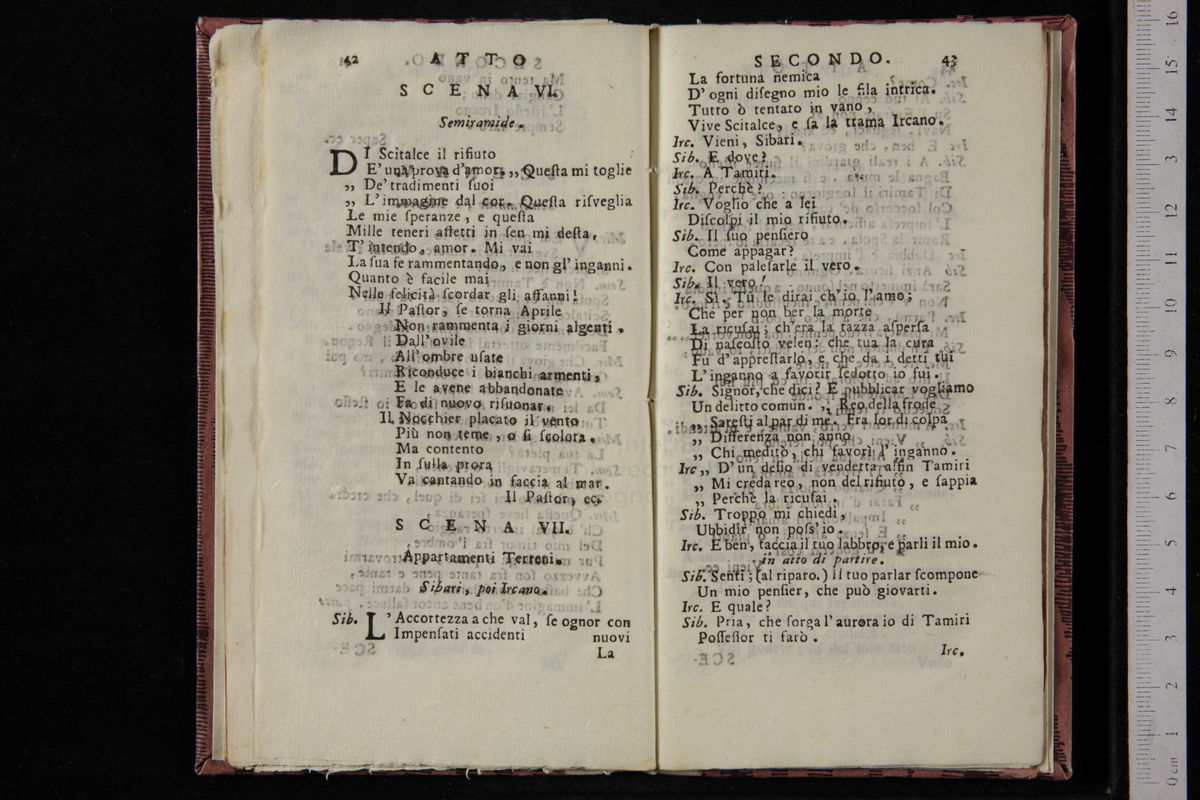 42 ATTO
SCENA VI.
Semiramide.
DI Scitalce il rifiuto
E' una prova d'amor. ,, Queſta mi toglie
,, De' tradimenti ſuoi
,, L'immagine dal cor. Queſta riſveglia
Le mie ſperanze, e queſta
Mille teneri affetti in ſen mi deſta.
T' intendo, amor. Mi vai
La ſua fe rammentando, e non gl' inganni.
Quanto è facile mai
Nelle felicità ſcordar gli affanni!
Il Paſtor, ſe torna Aprile
Non rammenta i giorni algenti.
Dall' ovile
All' ombre uſate
Riconduce i bianchi armenti,
E le avene abbandonate
Fa di nuovo riſuonar.
Il Nocchier placato il vento
Più non teme, o ſi ſcolora.
Ma contento
In ſulla prora
Va cantando in faccia al mar.
Il Paſtor, ec.
SCENA VII.
Appartamenti Terreni.
Sibari, poi Ircano.
Sib. L'Accortezza a che val, ſe ognor con nuovi
Impenſati accidenti
La
SECONDO. 43
La fortuna nemica
D' ogni diſegno mio le fila intrica.
Tutto ò tentato in vano,
Vive Scitalce, e ſa la trama Ircano.
Irc. Vieni, Sibari.
Sib. E dove?
Irc. A Tamiti.
Sib. Perchè?
Irc. Voglio che a lei
Diſcolpi il mio rifiuto.
Sib. Il ſuo penſiero
Come appagar?
Irc. Con paleſarle il vero.
Sib. Il vero!
Irc. Sì. Tu le dirai ch' io l'amo;
Che per non ber la morte
La ricuſai; ch'era la tazza aſperſa
Di naſcoſto velen: che tua la cura
Fu d' appreſtarlo, e che da i detti tui
L' inganno a favorir ſedotto io fui.
Sib. Signor, che dici? E pubblicar vogliamo
Un delitto comun. ,, Reo della frode
,, Sareſti al par di me. Fra lor di colpa
,, Differenza non anno
,, Chi meditò, chi favorì l' inganno.
Irc ,, D' un deſio di vendetta alfin Tamiri
,, Mi creda reo, non del rifiuto, e ſappia
,, Perchè la ricuſai.
Sib. Troppo mi chiedi,
Ubbidir non poſs' io.
Irc. E ben, taccia il tuo labbro, e parli il mio.
in atto di partire.
Sib. Senti; (al riparo.) Il tuo parlar ſcompone
Un mio penſier, che può giovarti.
Irc. E quale?
Sib. Pria, che ſorga l' aurora io di Tamiri
Poſſeſſor ti farò.
Irc.